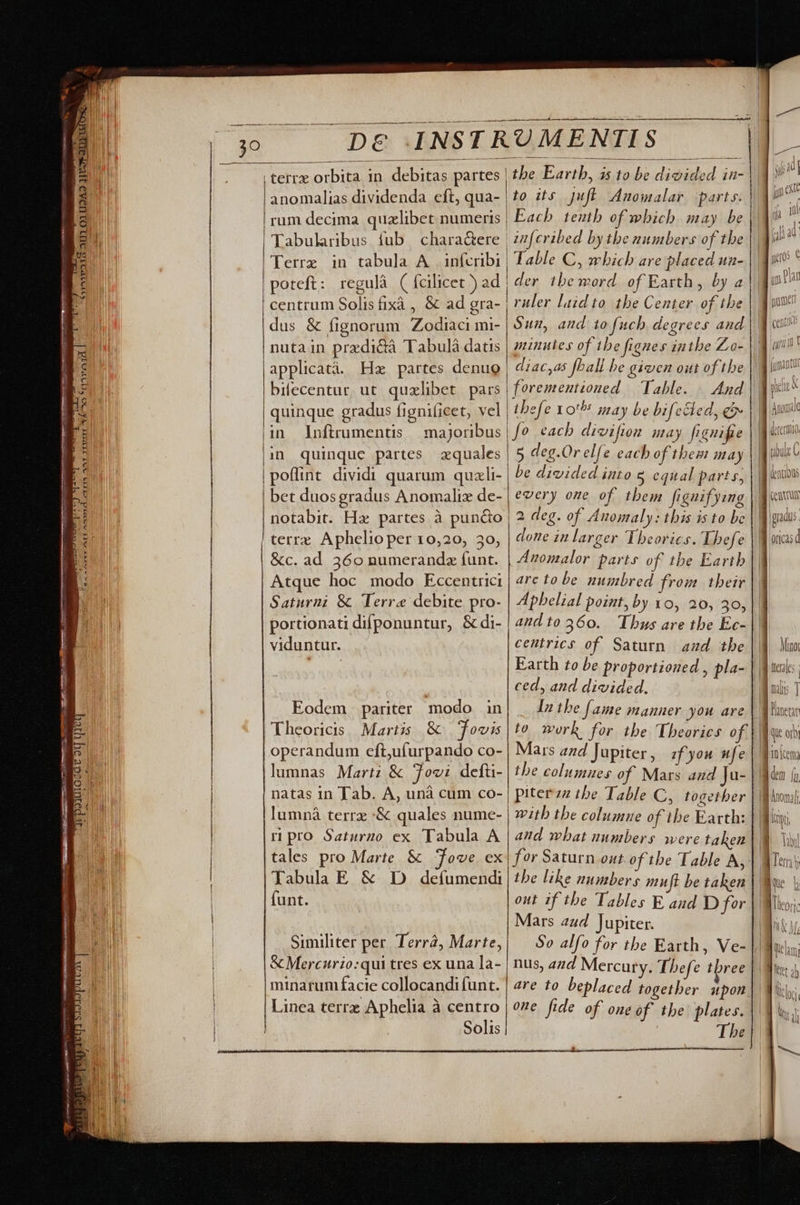 30 DE INSTRUMENTIS
terræ orbita in debitas partes
anomalias dividenda eſt, qua-
rum decima quælibet numeris
Tabularibus ſub charactere
Terræ in tabula A inſcribi
poteſt: regulâ (ſcilicet) ad
centrum Solis fixâ, & ad gra-
dus & ſignorum Zodiaci mi-
nuta in prædictâ Tabulâ datis
applicatâ. Hæ partes denuo
biſecentur ut quælibet pars
quinque gradus ſignificet, vel
in Inſtrumentis majoribus
in quinque partes æquales
poſſint dividi quarum quæli-
bet duos gradus Anomaliæ de-
notabit. Hæ partes à puncto
terræ Aphelio per 10,20, 30,
&c. ad 360 numerandæ ſunt.
Atque hoc modo Eccentrici
Saturni & Terræ debite pro-
portionati diſponuntur, & di-
viduntur.
Eodem pariter modo in
Theoricis Martis & Jovis
operandum eſt,uſurpando co-
lumnas Marti & Jovi deſti-
natas in Tab. A, unâ cum co-
lumnâ terræ & quales nume-
ri pro Saturno ex Tabula A
tales pro Marte & Jove ex
Tabula E & D deſumendi
ſunt.
Similiter per Terrâ, Marte,
& Mercurio:qui tres ex una la-
minarum facie collocandi ſunt.
Linea terræ Aphelia à centro
Solis
the Earth, is to be divided in-
to its juſt Anomalar parts.
Each tenth of which may be
inſcribed by the numbers of the
Table C, which are placed un-
der the word of Earth, by a
ruler laid to the Center of the
Sun, and to ſuch degrees and
minutes of the ſignes in the Zo-
diac,as ſhall be given out of the
forementioned Table. And
theſe 10ths may be biſected, &
ſo each diviſion may ſignifie
5 deg.Or elſe each of them may
be divided into 5 equal parts,
every one of them ſignifying
2 deg. of Anomaly: this is to be
done in larger Theorics. Theſe
Anomalor parts of the Earth
are to be numbred from their
Aphelial point, by 10, 20, 30,
and to 360. Thus are the Ec-
centrics of Saturn and the
Earth to be proportioned, pla-
ced, and divided.
In the ſame manner you are
to work for the Theorics of
Mars and Jupiter, if you uſe
the columnes of Mars and Ju-
piter in the Table C, together
with the columne of the Earth:
and what numbers were taken
for Saturn out of the Table A,
the like numbers muſt be taken
out if the Tables E and D for
Mars and Jupiter.
So alſo for the Earth, Ve-
nus, and Mercury. Theſe three
are to beplaced together upon
one ſide of one of the plates.
The